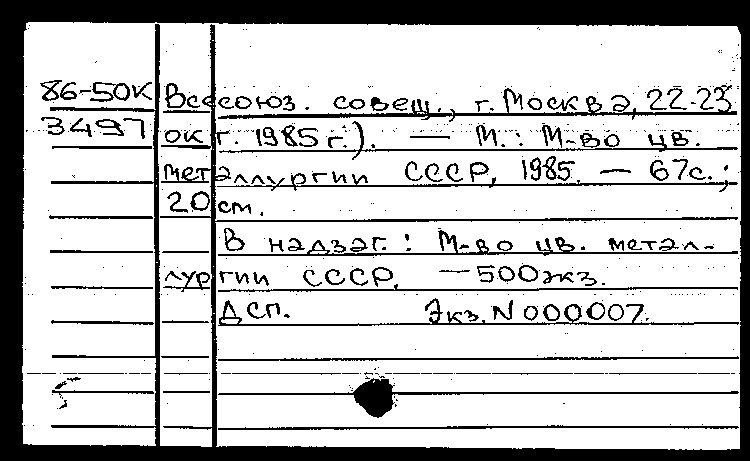 86-50К Всесоюз. совещ., г. Москва, 22-23
3497 окт. 1985 г.). — М.: М-во цв.
металлургии СССР, 1985. — 67с.;
20 см.
В надзаг.: М-во цв. метал-
лургии СССР. — 500 экз.
ДСП. Экз. N 000007.